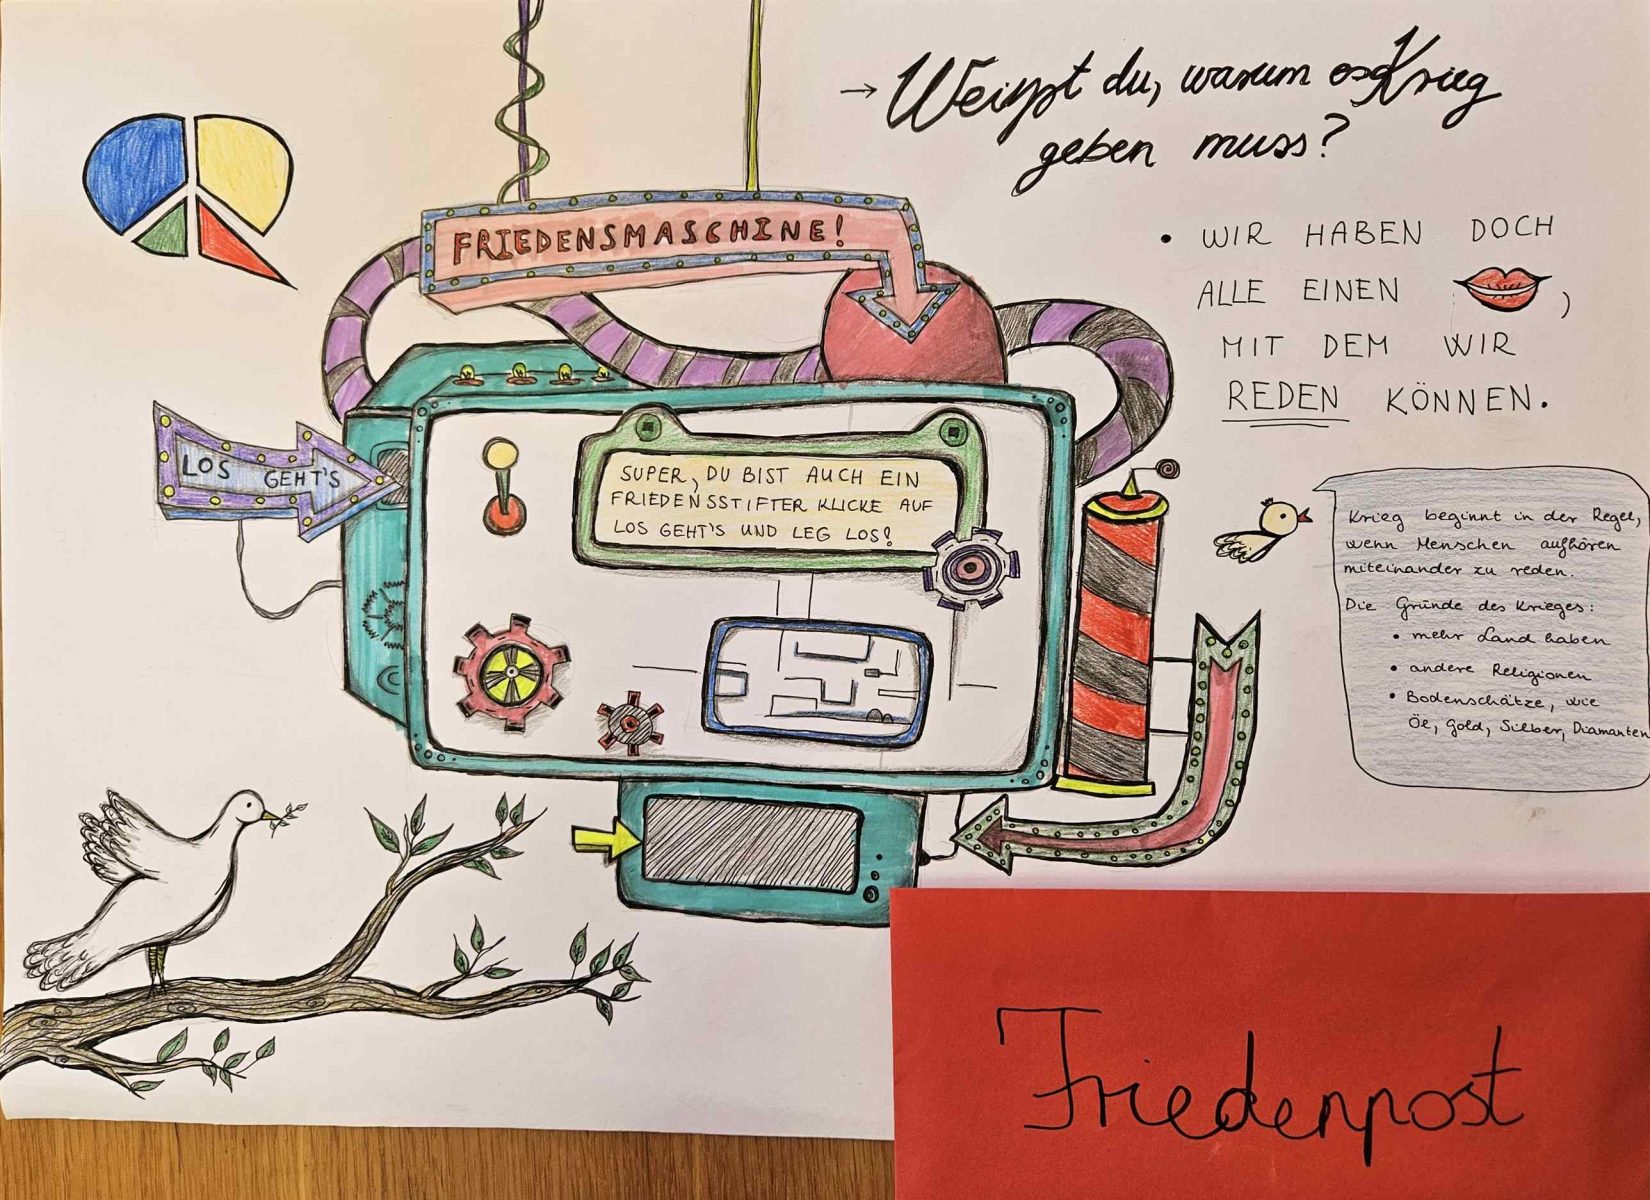 → Weißt du, warum es Krieg
geben muss?
FRIEDENSMASCHINE!
• WIR HABEN DOCH
ALLE EINEN ,
MIT DEM WIR
REDEN KÖNNEN.
LOS GEHT'S
SUPER, DU BIST AUCH EIN
FRIEDENSSTIFTER KLICKE AUF
LOS GEHT'S UND LEG LOS!
Krieg beginnt in der Regel,
wenn Menschen aufhören
miteinander zu reden.
Die Gründe des Krieges:
• mehr Land haben
• andere Religionen
• Bodenschätze, wie
Öl, Gold, Silber, Diamanten
Friedenpost